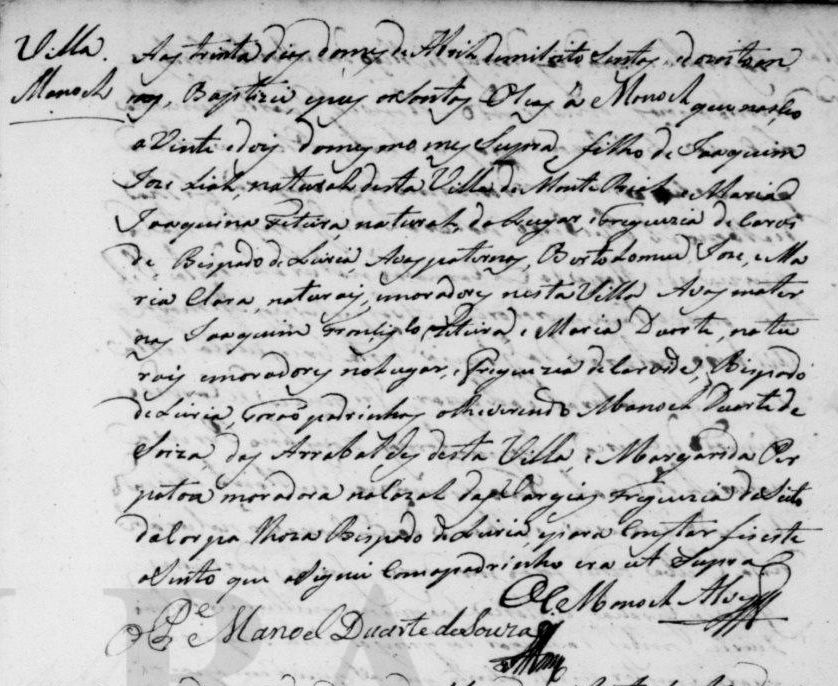 Villa.
Manoel
Aos trinta dias do mes de Abril de mil oito sentos, e douit an
nos, Baptizei, e pus os Santos Oleos a Manoel que nasceo
a Vinte e dois do mesmo mes Supra, filho de Joaquim
Joze Lial, natural desta Villa de Monte Rial, e Maria
Joaquina natural, do Lugar, e Freguezia de Carvi
de, Bispado de Liria, Avos paternos, Bertolomeu Joze, e Ma
ria Clara, naturais, e moradores nesta Villa Avos mater
nos Joaquim e Maria Duarte, natu
rais e moradores no Lugar, e Freguezia de Carvide, Bispado
de Liria, Forão padrinhos o Reverendo Manoel Duarte de
Soiza dos Arrabaldes desta Villa, e Margarida Per
petoa moradora no Cazal das Freguezia do Souto
da Carpa Bispado de Liria, e para Constar fis este
aSento que aSignei Com o padrinho era ut Supra
O Manoel Alves
O Pe Manoel Duarte de Souza